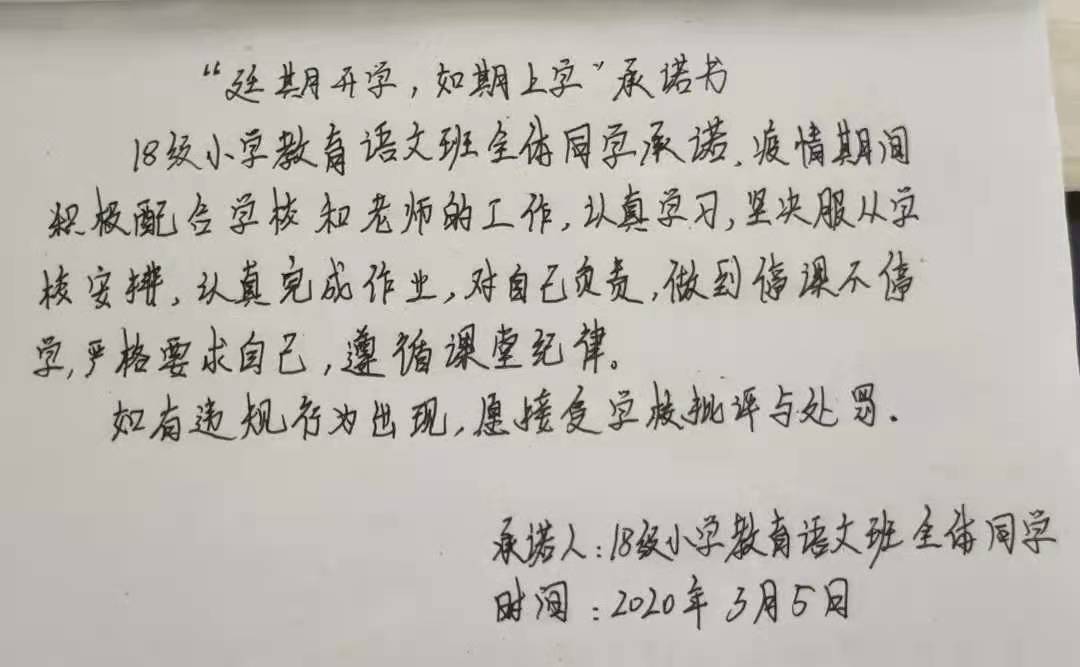 “延期开学，如期上学”承诺书
18级小学教育语文班全体同学承诺，疫情期间
积极配合学校和老师的工作，认真学习，坚决服从学
校安排，认真完成作业，对自己负责，做到停课不停
学，严格要求自己，遵循课堂纪律。
如有违规行为出现，愿接受学校批评与处罚。
承诺人：18级小学教育语文班全体同学
时间：2020年3月5日